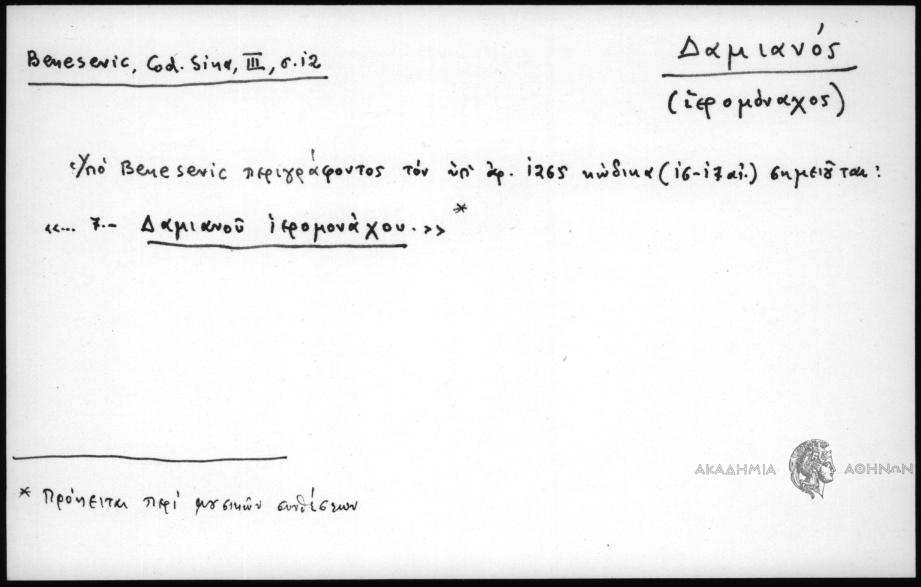 Benesevic, Cod. Sina, III, σ. 12
Δαμιανός
(ἱερομόναχος)
Ὑπό Benesevic περιγράφοντος τόν ὑπ' ἀρ. 1265 κώδικα (16-17 αἰ.) σημειοῦται:
«... 7.- Δαμιανοῦ ἱερομονάχου.»*
ΑΚΑΔΗΜΙΑ ΑΘΗΝΩΝ
* Πρόκειται περί μουσικῶν συνθέσεων